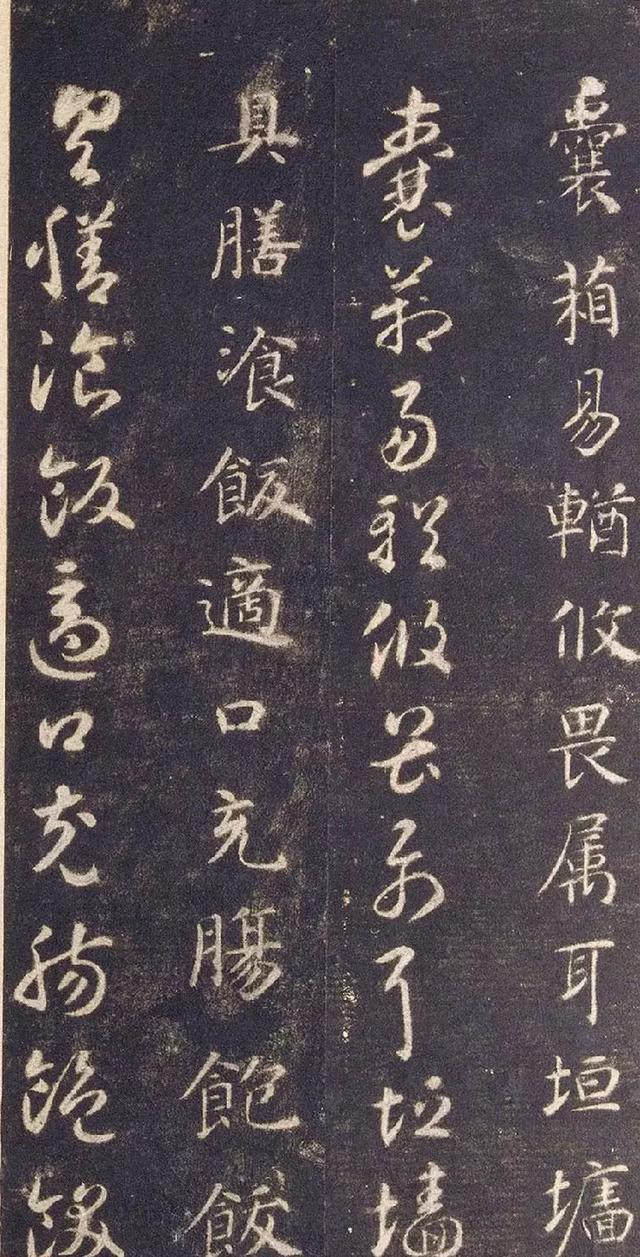 囊箱易輶攸畏属耳垣墻
囊箱易輶攸畏属耳垣墻
具膳飡飯適口充腸飽飫
具膳飡飯適口充腸飽飫